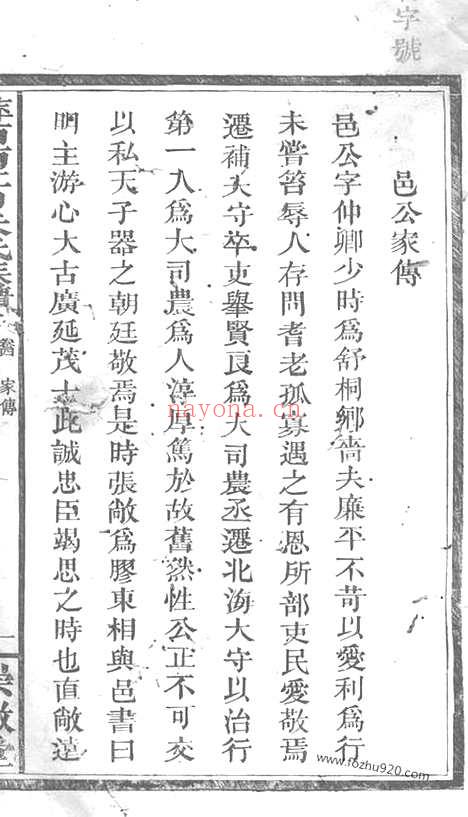 字號
邑公家傳
邑公字仲卿少時爲舒桐鄉嗇夫廉平不苛以愛利爲行
未嘗笞辱人存問耆老孤寡遇之有恩所部吏民愛敬焉
遷補大守卒吏舉賢良爲大司農丞遷北海大守以治行
第一入爲大司農爲人淳厚篤於故舊然性公正不可交
以私天子器之朝廷敬焉是時張敞爲膠東相與邑書曰
明主游心大古廣延茂士此誠忠臣竭思之時也直敞遠
家傳
nayona.cn
www.fozhu920.com